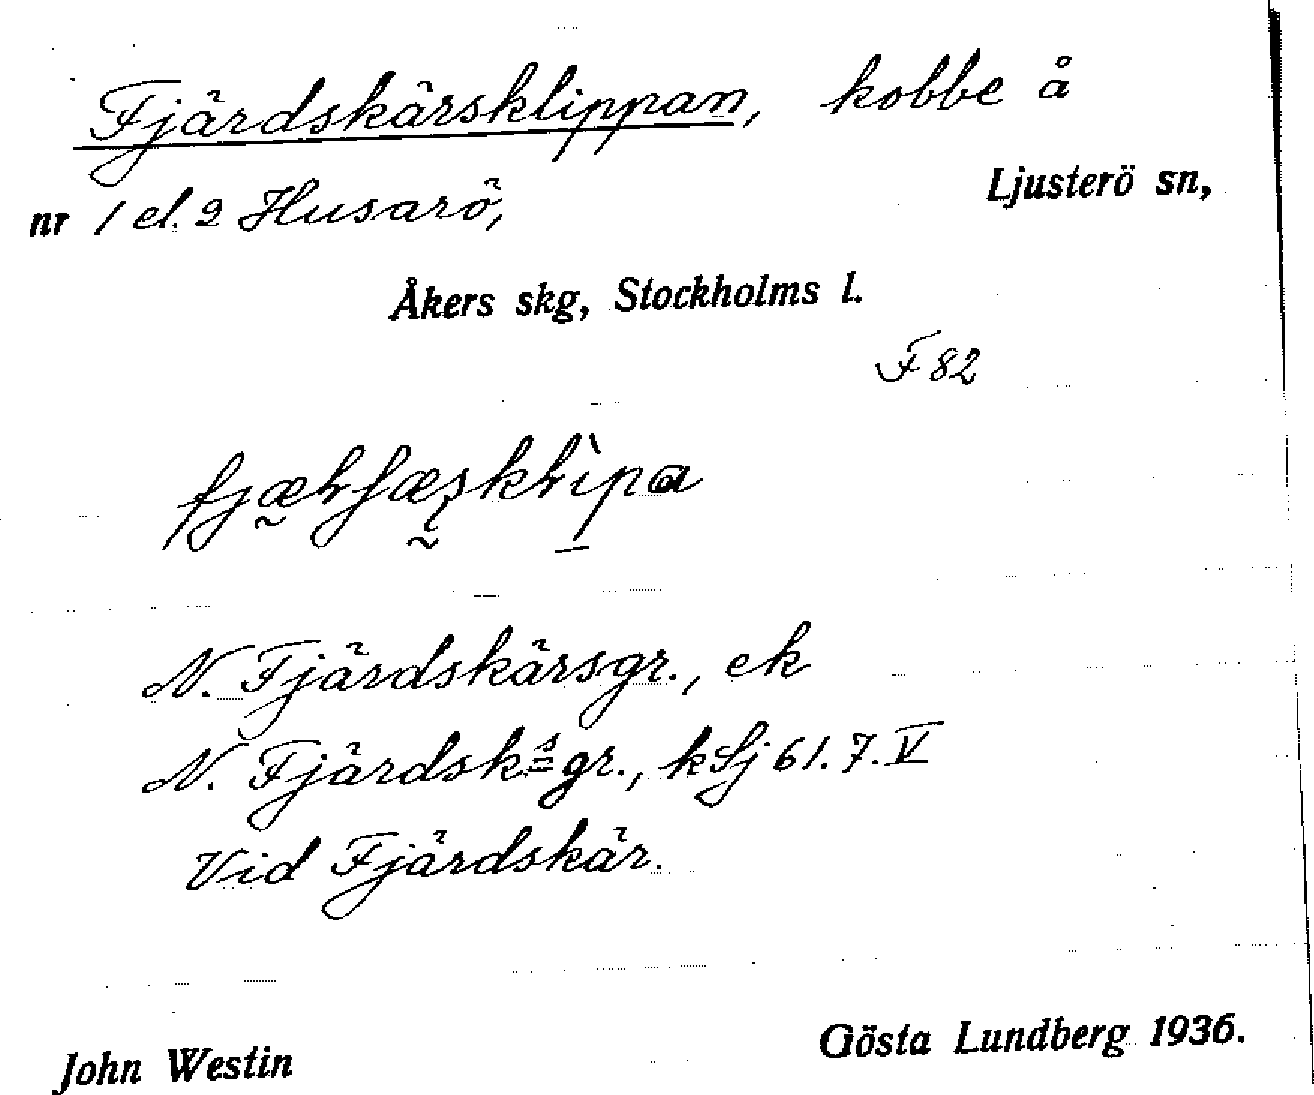 Fjärdskärsklippan, kobbe å
Ljusterö sn,
nr 1 el. 2 Husarö,
Åkers skg, Stockholms l.
F 82
N. Fjärdskärsgr., ek
N. Fjärdskˢgr., kSj 61.7.V
Vid Fjärdskär.
John Westin Gösta Lundberg 1936.